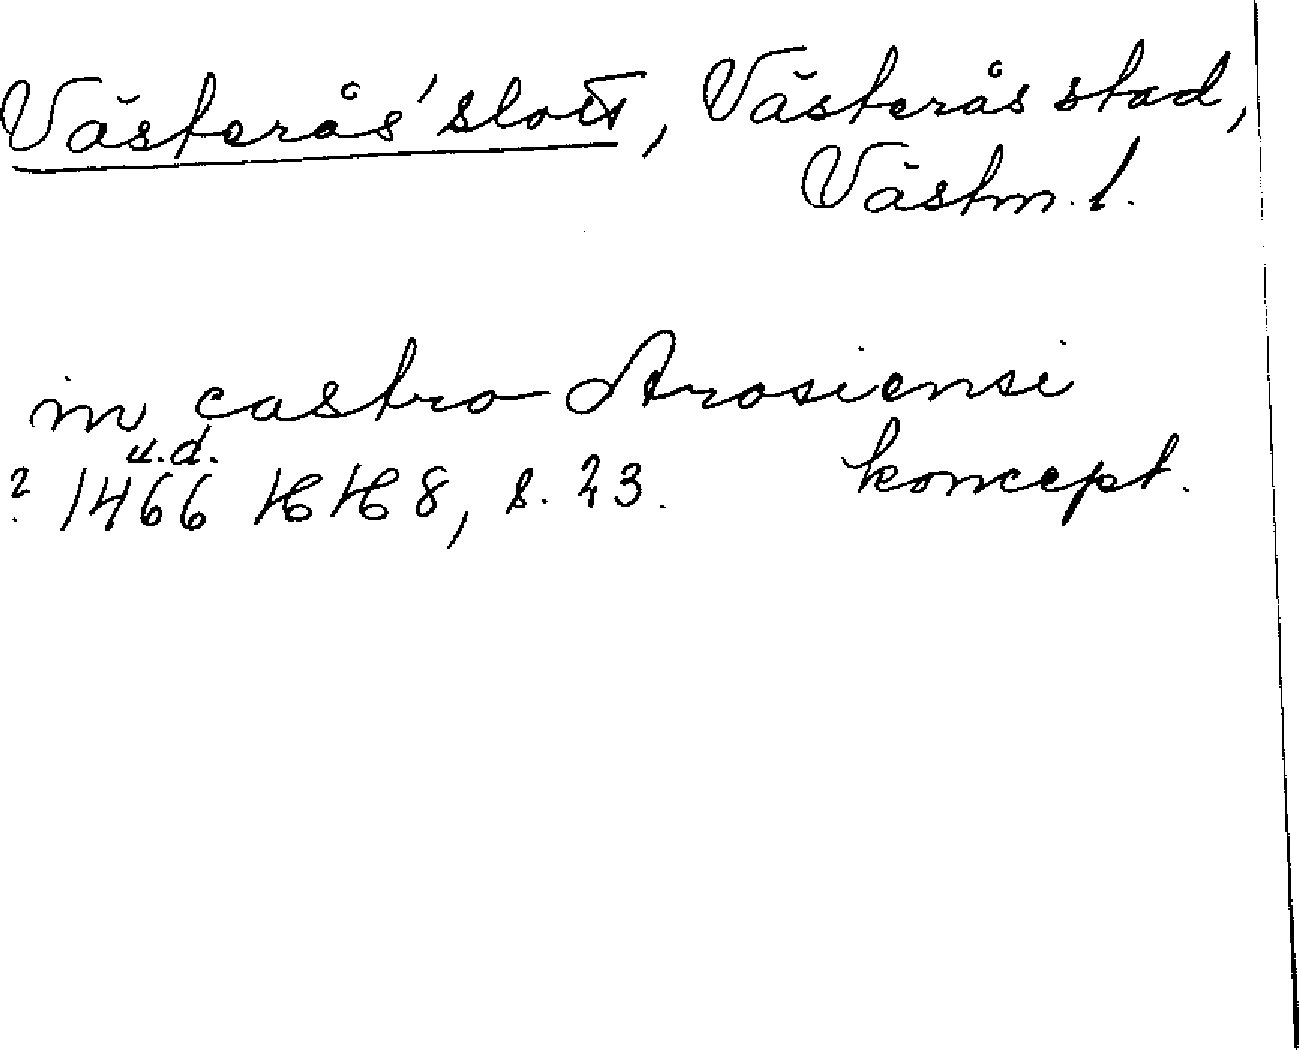 Västerås' slott, Västerås stad,
Västm. l.
in castro Arosiensi
u.d.
? 1466 HH 8, s. 23. koncept.